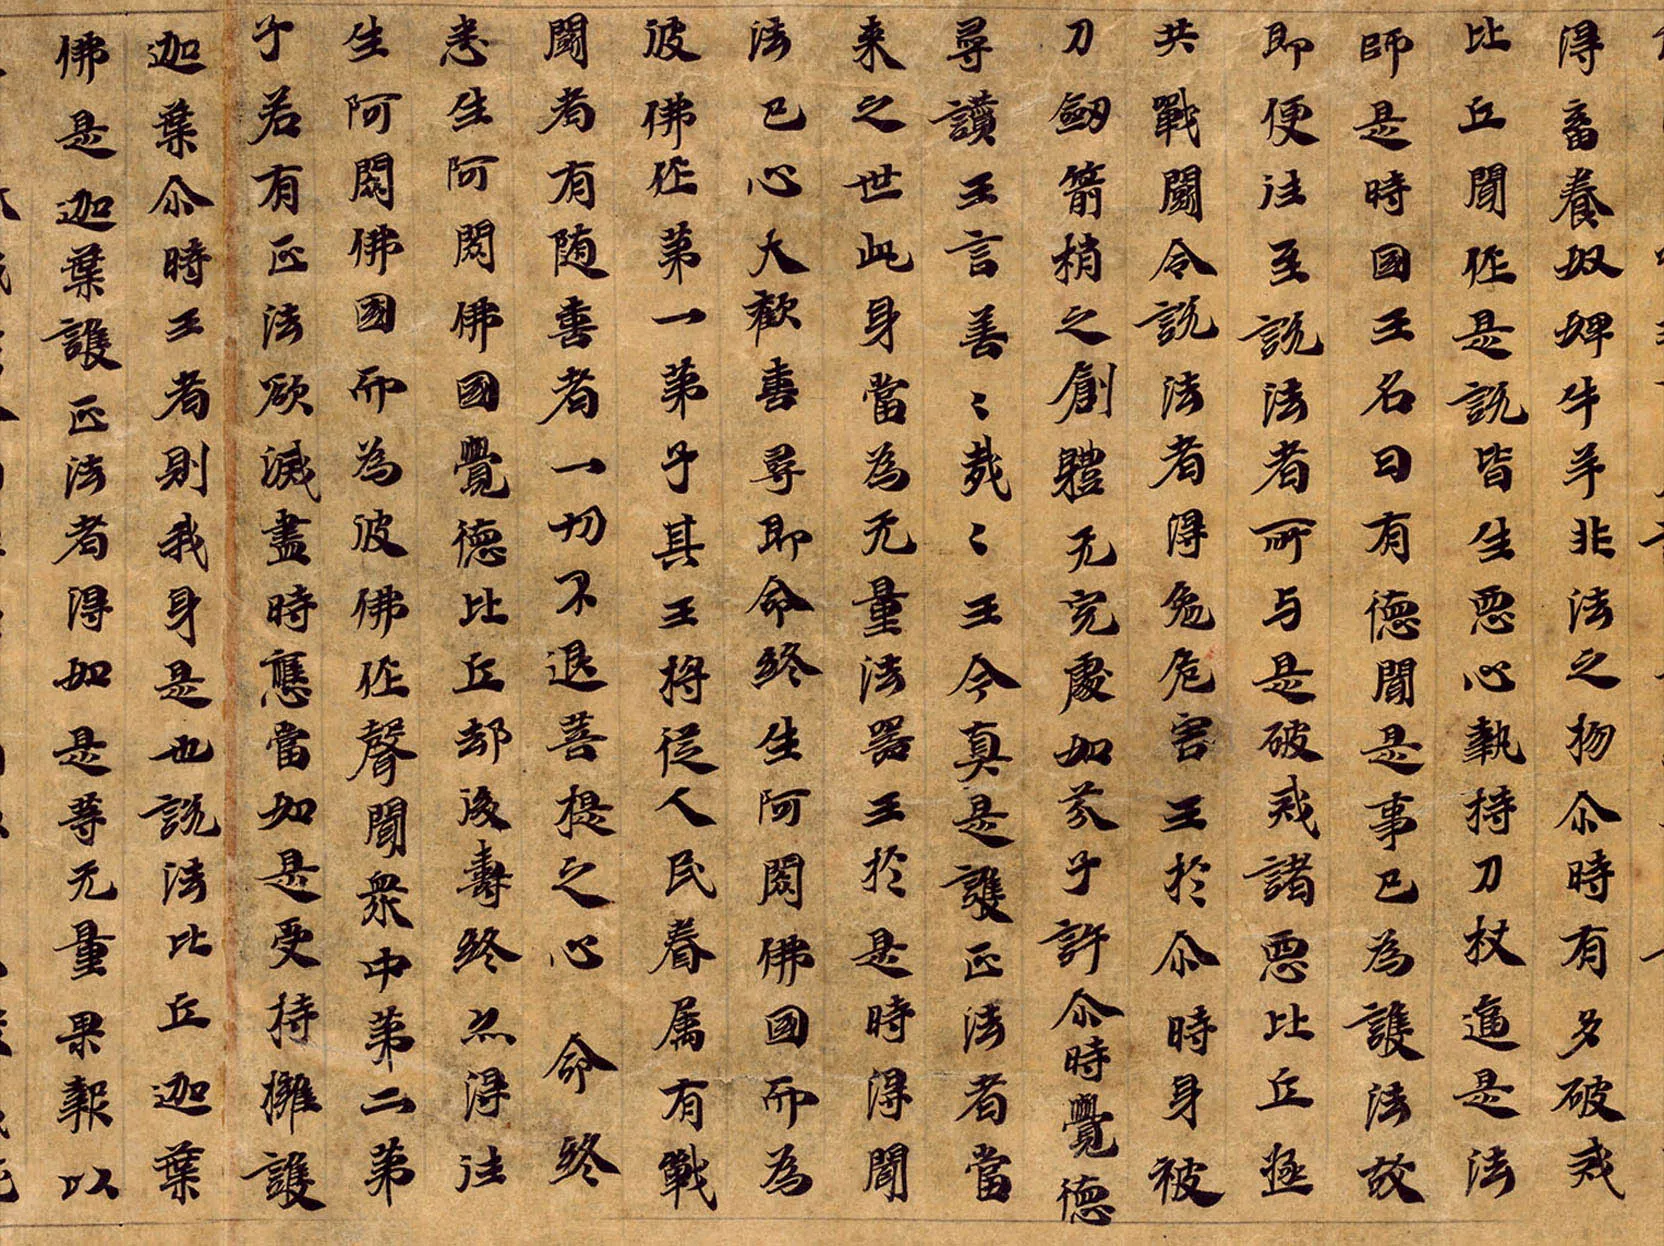 得畜養奴婢牛羊非法之物尒時有多破戒
比丘聞作是說皆生惡心執持刀杖逼是法
師是時國王名曰有德聞是事已為護法故
即便往至說法者所与是破戒諸惡比丘極
共戰鬪令說法者得免危害王於尒時身被
刀劔箭梢之創體无完處如芥子許尒時覺德
尋讚王言善〻哉〻王今真是護正法者當
来之世此身當為无量法器王於是時得聞
法已心大歡喜尋即命終生阿閦佛國而為
彼佛作第一弟子其王將從人民眷属有戰
鬪者有随喜者一切不退菩提之心命終
悉生阿閦佛國覺德比丘却後壽終亦得往
生阿閦佛國而為彼佛作聲聞衆中第二弟
子若有正法欲滅盡時應當如是受持擁護
迦葉尒時王者則我身是也說法比丘迦葉
佛是迦葉護正法者得如是等无量果報以